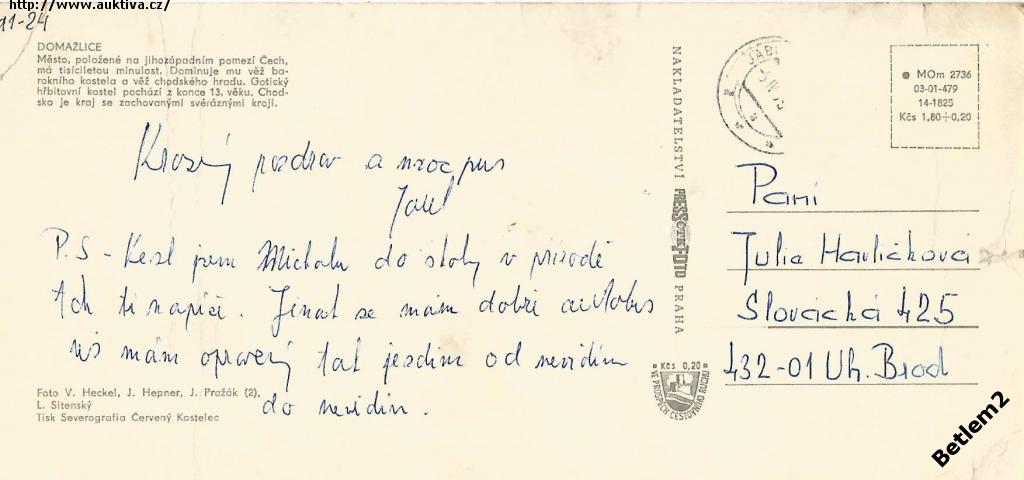 http://www.auktiva.cz/
11-24
DOMAŽLICE
Město, položené na jihozápadním pomezí Čech,
má tisíciletou minulost. Dominuje mu věž ba-
rokního kostela a věž chodského hradu. Gotický
hřbitovní kostel pochází z konce 13. věku. Chod-
sko je kraj se zachovanými svéráznými kroji.
pozdrav a
P.S - jsem Michala do školy v přírodě
tak ti napíši. Jinak se mám dobře autobus
už mám opravený tak jezdím od nevidím
do nevidim.
Foto V. Heckel, J. Hepner, J. Pražák (2),
L. Sitenský
Tisk Severografia Červený Kostelec
NAKLADATELSTVÍ PRESSFOTO PRAHA
Kčs 0,20
VE PROSPĚCH CESTOVNÍHO RUCHU
MOm 2736
03-01-479
14-1825
Kčs 1,80+0,20
Paní
Julia Havlíčková
Slovácká 425
432-01 Uh. Brod
Betlem2